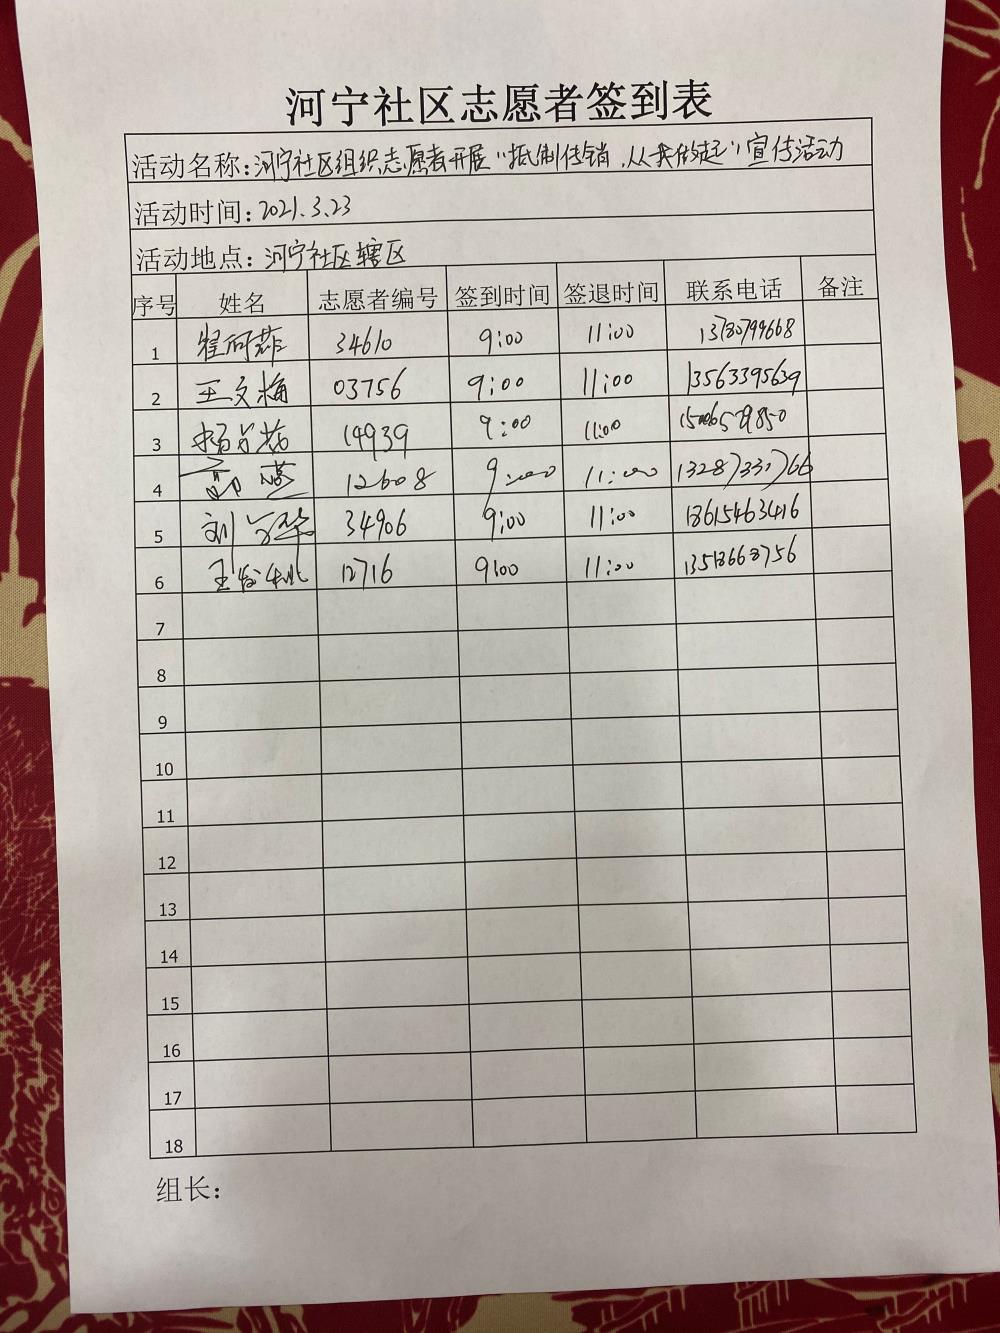 河宁社区志愿者签到表
活动名称:河宁社区组织志愿者开展“抵制传销,从我做起”宣传活动
活动时间:2021.3.23
活动地点:河宁社区辖区
序号 姓名 志愿者编号 签到时间 签退时间 联系电话 备注
1 34610 9:00 11:00
2 王文梅 03756 9:00 11:00 13563395639
3 14939 9:00 11:00
4 12608 9:00 11:00
5 刘 34906 9:00 11:00 18615463416
6 王 12716 9:00 11:00
7
8
9
10
11
12
13
14
15
16
17
18
组长: